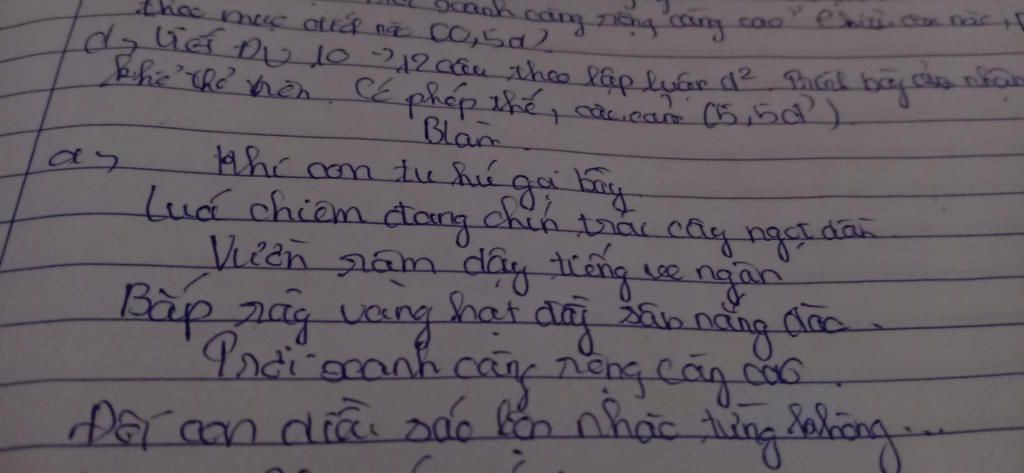 theo mục đích nói (0,5đ)
d, Viết ĐV 10 → 12 câu theo lập luận d²
khi thế nên. Có phép thế, câu cảm (5,5đ)
Blàm
a, Khi con tu hú gọi bầy
Luá chiêm đang chín trái cây ngọt dần
Vườn râm dậy tiếng ve ngân
Bắp rây vàng hạt đầy sân nắng đào.
Trời xanh càng rộng càng cao.
Đôi con diều sáo lộn nhào từng không...